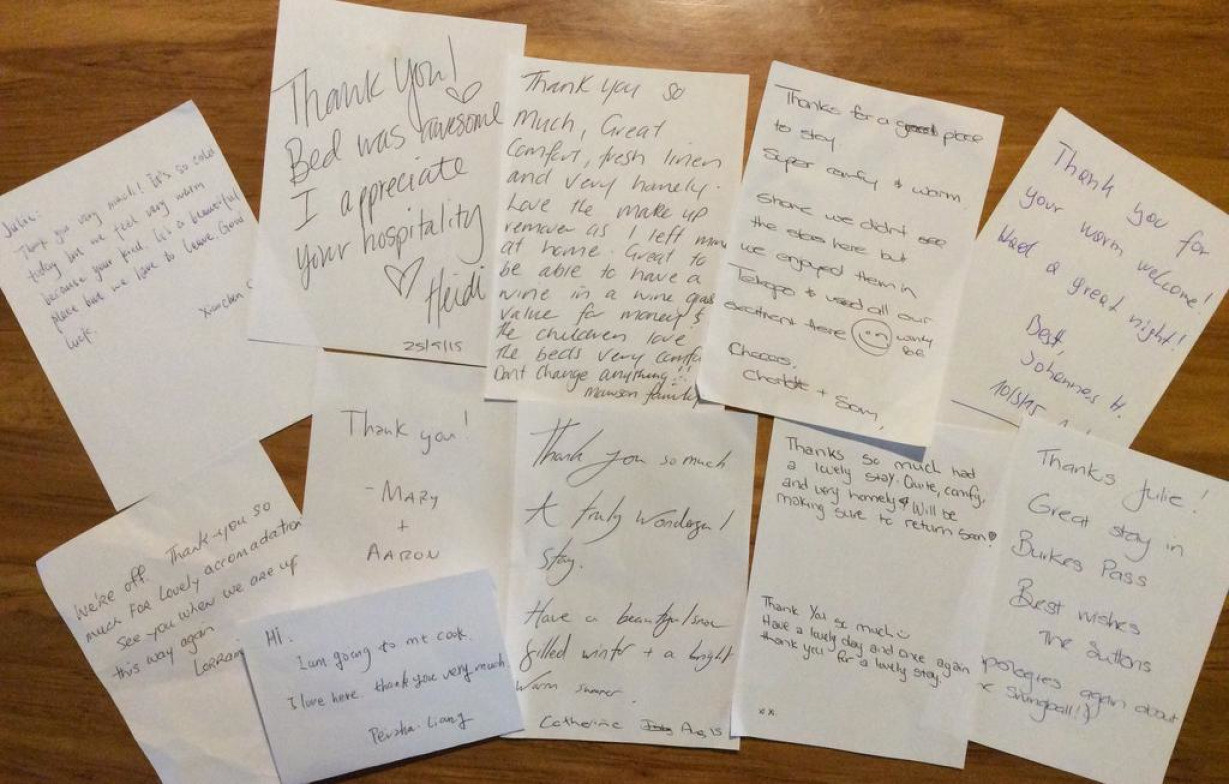 Julie:
Thank you very much! It's so cold
today but we feel very warm
because your kind. It's a beautiful
place but we have to leave. Good
Luck.
Thank You!
Bed was awesome
I appreciate
your hospitality
Heidi
25/9/15
Thank you so
much, Great
Comfort, fresh linen
and very homely.
Love the make up
remover as I left mine
at home. Great to
be able to have a
wine in a wine glass
value for money &
the children love
the beds very comfy
Dont change anything!!
mawson family
Thanks for a good place
to stay
Super comfy & warm.
Shame we didnt see
the stars here but
we enjoyed them in
Tekapo & used all our
excitment there
Cheers,
Charlotte + Sam,
Thank you for
your warm welcome!
Had a great night!
Best,
Johannes H.
10/5/15
We're off. Thank-you so
much for lovely accomadation
see you when we are up
this way again
Thank you!
- MARY
+
AARON
Hi.
I am going to mt cook.
I love here. thank you very much.
Liang
Thank you so much
A truly wonderful
stay.
Have a beautiful snow
filled winter + a bright
warm summer.
Catherine Aug 15
Thanks so much had
a lovely stay. Quite, comfy,
and very homely & Will be
making sure to return soon
Thank You so much
Have a lovely day and once again
thank you for a lovely stay.
xx
Thanks Julie!
Great stay in
Burkes Pass
Best wishes
The Suttons
apologies again about
Swingball!)